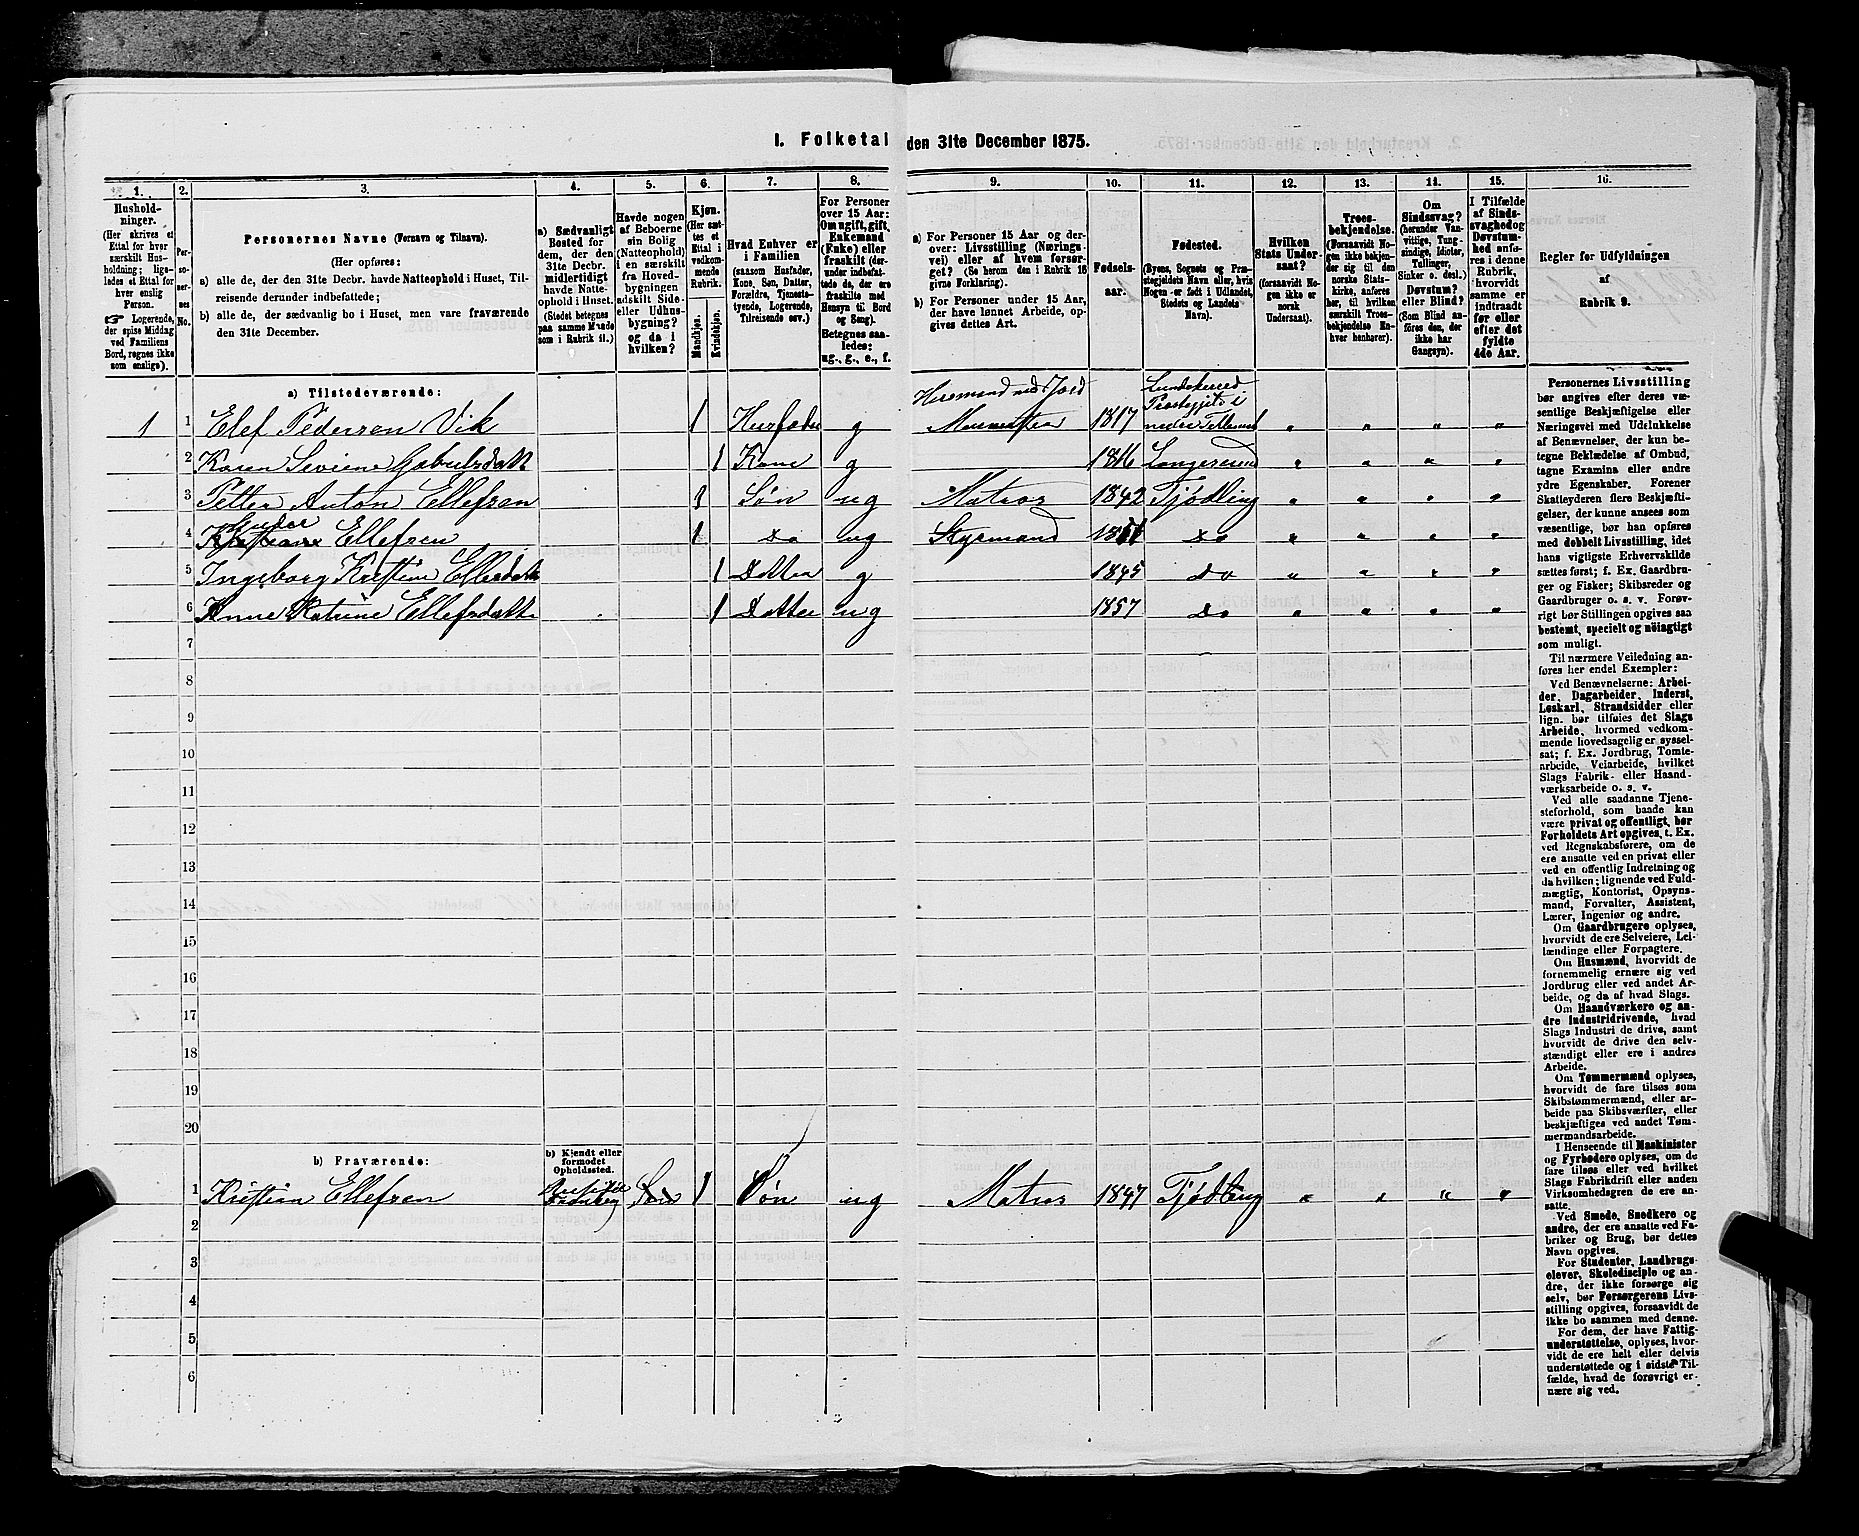 1. Folketal den 31te December 1875.
1. 2. 3. 4. 5. 6. 7. 8. 9. 10. 11. 12. 13. 14. 15. 16.
Hushold-
ninger.
(Her skrives et
Ettal for hver
særskilt Hus-
holdning; lige-
ledes et Ettal for
hver enslig
Person.
☞ Logerende,
der spise Middag
ved Familiens
Bord, regnes ikke
som enslige).
Per-
so-
ner-
nes
No.
Personernes Navne (Fornavn og Tilnavn).
(Her opføres:
a) alle de, der den 31te Decbr. havde Natteophold i Huset, Til-
reisende derunder indbefattede;
b) alle de, der sædvanlig bo i Huset, men vare fraværende
den 31te December.
a) Sædvanligt
Bosted for
dem, der den
31te Decbr.
midlertidigt
havde Natte-
ophold i Huset.
(Stedet betegnes
paa samme Maade
som i Rubrik 11.)
Havde nogen
af Beboerne
sin Bolig
(Natteophold)
i en særskilt
fra Hoved-
bygningen
adskilt Side-
eller Udhus-
bygning? og
og da i
hvilken?
Kjøn.
(Her sæt-
tes et
Ettal i
vedkom-
mende
Rubrik.
Mandkjøn.
Kvindekjøn.
Hvad Enhver er
i Familien
(saasom Husfader,
Kone, Søn, Datter,
Forældre, Tjeneste-
tyende, Logerende,
Tilreisende osv.)
For Personer
over 15 Aar:
Om ugift, gift,
Enkemand
(Enke) eller
fraskilt (der-
under indbefat-
tede de, der ere
fraskilte med
Hensyn til Bord
og Seng).
Betegnes saa-
ledes:
ug., g., e., f.
a) For Personer 15 Aar og der-
over: Livsstilling (Nærings-
vei) eller af hvem forsør-
get? (Se herom den i Rubrik 16
givne Forklaring).
b) For Personer under 15 Aar,
der have lønnet Arbeide, op-
gives dettes Art.
Fødsels-
aar.
Fødested.
(Byens, Sognets og Præ-
stegjeldets Navn eller, hvis
Nogen er født i Udlandet,
Stedets og Landets
Navn).
Hvilken
Stats Under-
saat?
(forsaavidt No-
gen ikke er
norsk
Undersaat).
Troes-
bekjendelse.
(Forsaavidt No-
gen ikke bekjen-
der sig til den
norske Stats-
kirke, anføres
her, til hvilken
særskilt Troes-
bekjendelse En-
hver henhører).
Om
Sindssvag?
(herunder Van-
vittige, Tung-
sindige, Idioter,
Tullinger,
Sinker o. desl.)
Døvstum?
eller Blind?
(Som Blind an-
føres den, der
ikke har
Gangsyn).
I Tilfælde
af Sinds-
svaghed og
Døvstum-
hed anfø-
res i denne
Rubrik,
hvorvidt
samme er
indtraadt
før eller
efter det
fyldte
4de Aar.
Regler for Udfyldningen
af
Rubrik 9.
a) Tilstedeværende:
1 1 Elef Pedersen Vik 1 Husfader g Husmand med Jord 1817 " " " "
2 Karen 1 Kone g 1816 Langesund " " " "
3 Petter Anton Ellefsen 1 Søn ug Matros 1842 Tjødling " " " "
4 Ellefsen 1 do ug Styrmand do " " " "
5 Ingeborg Kristine 1 Datter g 1845 do " " " "
6 Anne Katrine Ellefsdatte 1 Datter ug 1857 do " " " "
7
8
9
10
11
12
13
14
15
16
17
18
19
20
b) Fraværende:
b) Kjendt eller
formodet
Opholdssted.
1 Kristian Ellefsen 1 Søn ug Matros 1847 Tjødling " " " "
2
3
4
5
6
Personernes Livsstilling
bør angives efter deres væ-
sentlige Beskjæftigelse eller
Næringsvei med Udelukkelse
af Benævnelser, der kun be-
tegne Beklædelse af Ombud,
tagne Examina eller andre
ydre Egenskaber. Forener
Skatteyderen flere Beskjæfti-
gelser, der kunne ansees som
væsentlige, bør han opføres
med dobbelt Livsstilling, idet
hans vigtigste Erhvervskilde
sættes først; f. Ex. Gaardbru-
ger og Fisker; Skibsreder og
Gaardbruger o. s. v. Forøv-
rigt bør Stillingen opgives saa
bestemt, specielt og nöiagtigt
som muligt.
Til nærmere Veiledning an-
føres her endel Exempler:
Ved Benævnelserne: Arbei-
der, Dagarbeider, Inderst,
Løskarl, Strandsidder eller
lign. bør tilføies det Slags
Arbeide, hvormed vedkom-
mende hovedsagelig er syssel-
sat; f. Ex. Jordbrug, Tomte-
arbeide, Veiarbeide, hvilket
Slags Fabrik- eller Haand-
værksarbeide o. s. v.
Ved alle saadanne Tjene-
steforhold, som baade kan
være privat og offentligt, bør
Forholdets Art opgives, t. Ex.
ved Regnskabsførere, om de
ere ansatte ved en privat eller
ved en offentlig Indretning og
da hvilken; lignende ved Fuld-
mægtig, Kontorist, Opsyns-
mand, Forvalter, Assistent,
Lærer, Ingeniør og andre.
Om Gaardbrugere oplyses,
hvorvidt de ere Selveiere, Lei-
lændinge eller Forpagtere.
Om Husmænd, hvorvidt de
fornemmelig ernære sig ved
Jordbrug eller ved andet Ar-
beide, og da af hvad Slags.
Om Haandværkere og an-
dre Industridrivende, hvad
Slags Industri de drive, samt
hvorvidt de drive den selv-
stændigt eller ere i andres
Arbeide.
Om Tømmermænd oplyses,
hvorvidt de fare tilsøs som
Skibstømmermænd, eller ar-
beide paa Skibsværfter, eller
beskjæftiges ved andet Tøm-
mermandsarbeide.
I Henseende til Maskinister
og Fyrbødere oplyses, om de
fare tilsøs eller ved hvilket
Slags Fabrikdrift eller anden
Virksomhedsgren de ere an-
satte.
Ved Smede, Snedkere og
andre, der ere ansatte ved Fa-
briker og Brug, bør dettes
Navn opgives.
For Studenter, Landbrugs-
elever, Skoledisciple og an-
dre, der ikke forsørge sig
selv, bør Forsørgerens Livs-
stilling opgives, forsaavidt de
ikke bo sammen med denne.
For dem, der have Fattig-
understøttelse, oplyses, hvor-
vidt de ere helt eller delvis
understøttede og i sidste Til-
fælde, hvad de forøvrigt er-
nære sig ved.